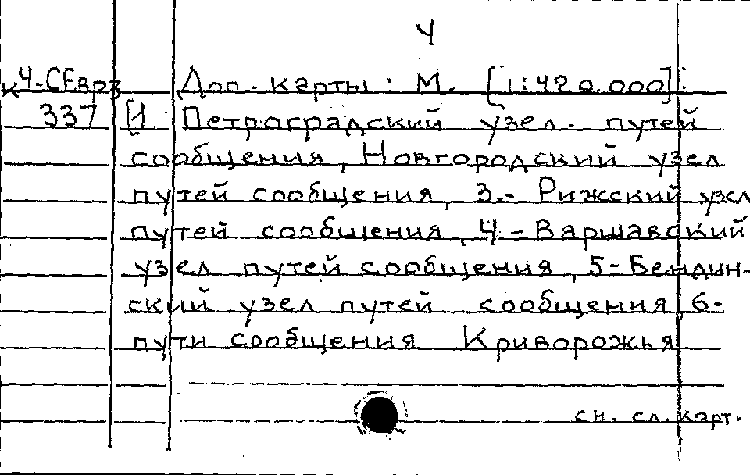 4
К4-СЕвр3 Доп. карты: М. [1:420.000]:
337 [1 Петроградский узел. путей
сообщения, Новгородский узел
путей сообщения, 3.- Рижский узел
путей сообщения, 4.- Варшавский
узел путей сообщения, 5-Бендин-
ский узел путей сообщения, 6-
пути сообщения Криворожья
см. сл. карт.